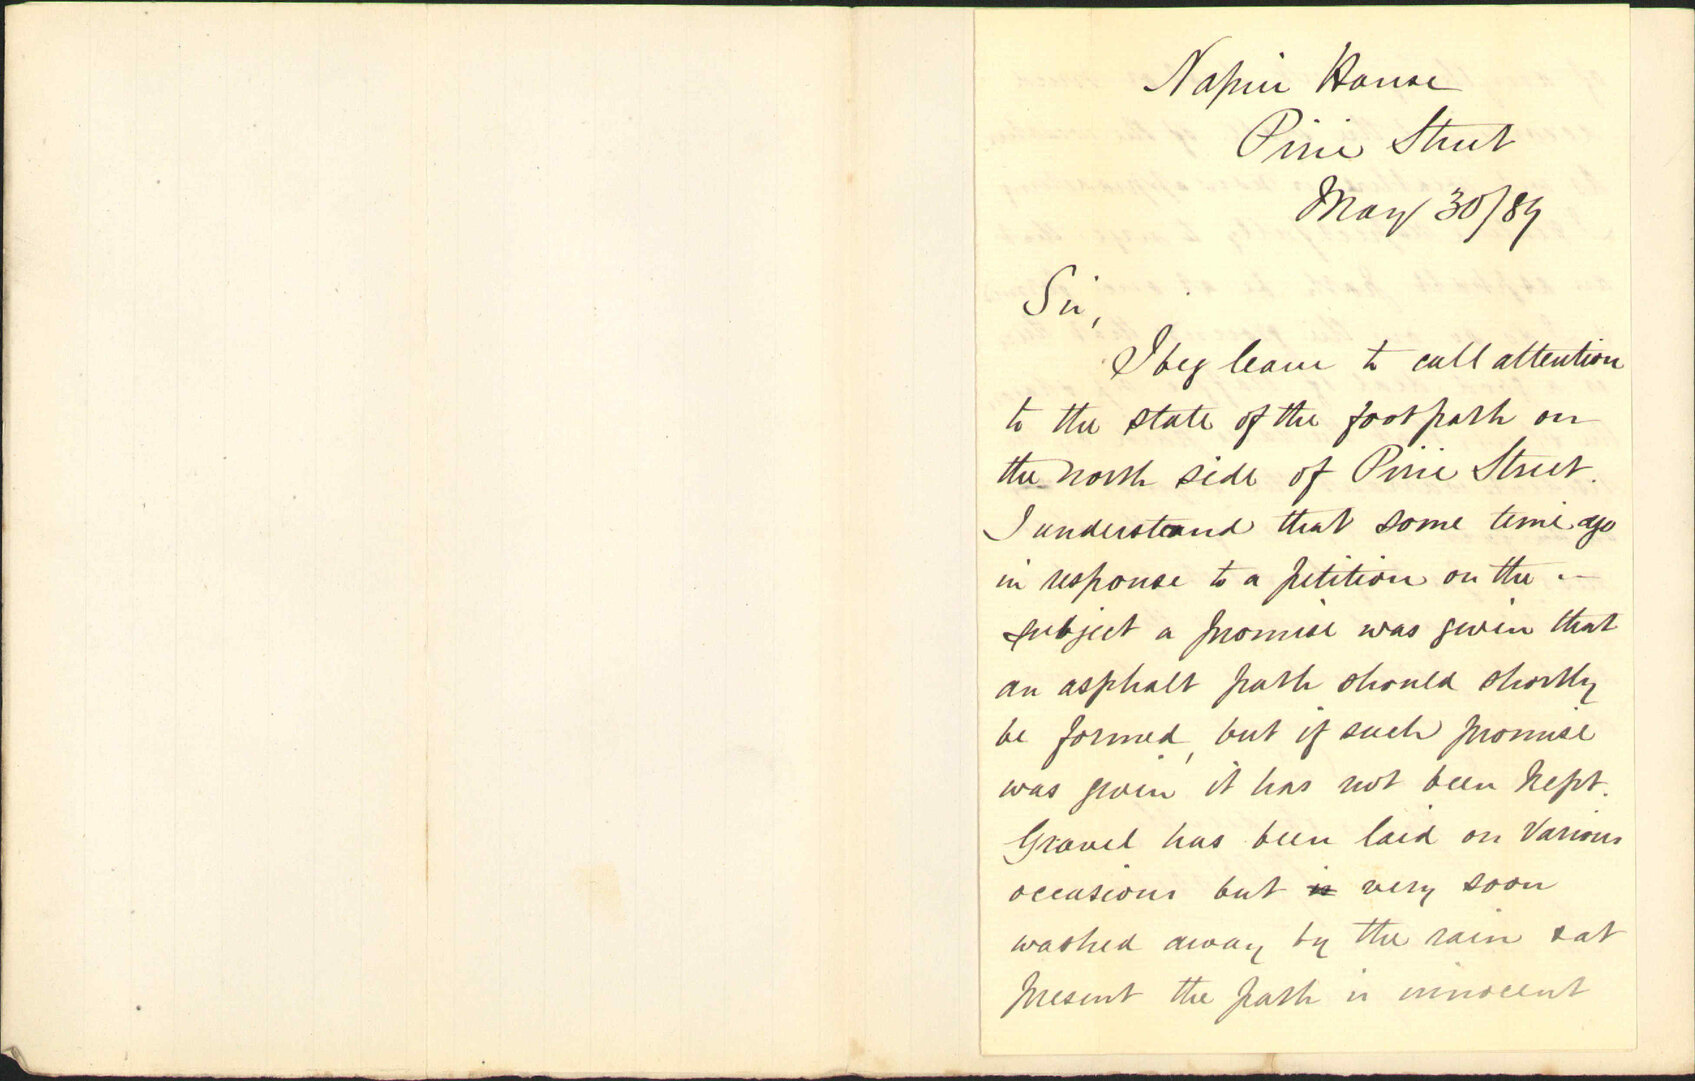 Napier House
Pirie Street
May 30/89
Sir,
I beg leave to call attention
to the state of the footpath on
the north side of Pirie Street.
I understand that some time ago
in response to a petition on the
subject a promise was given that
an asphalt path should shortly
be formed, but if such promise
was given it has not been kept.
Gravel has been laid on various
occasions but is very soon
washed away by the rain & at
present the path is innocent